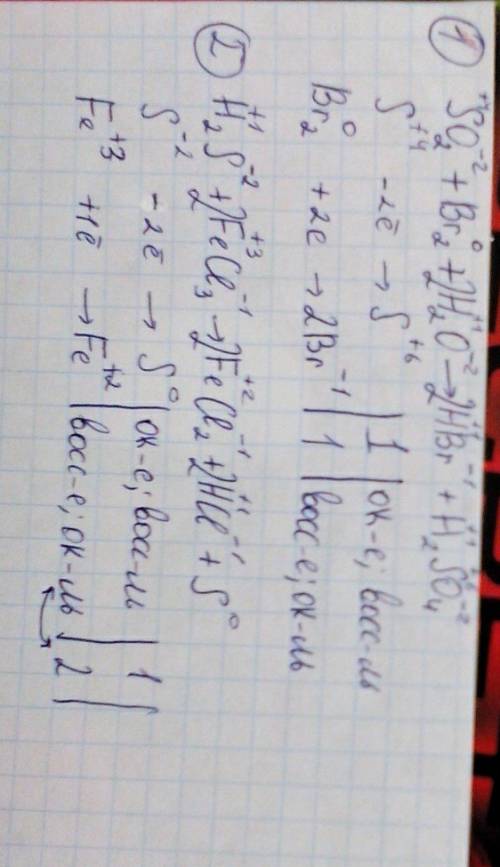 1
S⁺⁴O₂⁻² + Br₂⁰ + 2H₂⁺¹O⁻² → 2H⁺¹Br⁻¹ + H₂⁺¹S⁺⁶O₄⁻²
S⁺⁴ -2ē → S⁺⁶ | 1 | ок-е; восс-ль
Br₂⁰ +2е → 2Br⁻¹ | 1 | восс-е; ок-ль
2
H₂⁺¹S⁻² + 2Fe⁺³Cl₃⁻¹ → 2Fe⁺²Cl₂⁻¹ + 2H⁺¹Cl⁻¹ + S⁰
S⁻² -2ē → S⁰ | ок-е; восс-ль | 1
Fe⁺³ +1ē → Fe⁺² | восс-е; ок-ль | 2